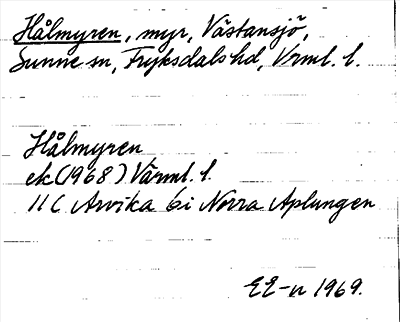 Hålmyren, myr, Västansjö,
Sunne sn, Fryksdals hd, Vrml. l.
Hålmyren
ek (1968) Värml. l.
11C Arvika 6i Norra Aplungen
EE-n 1969.